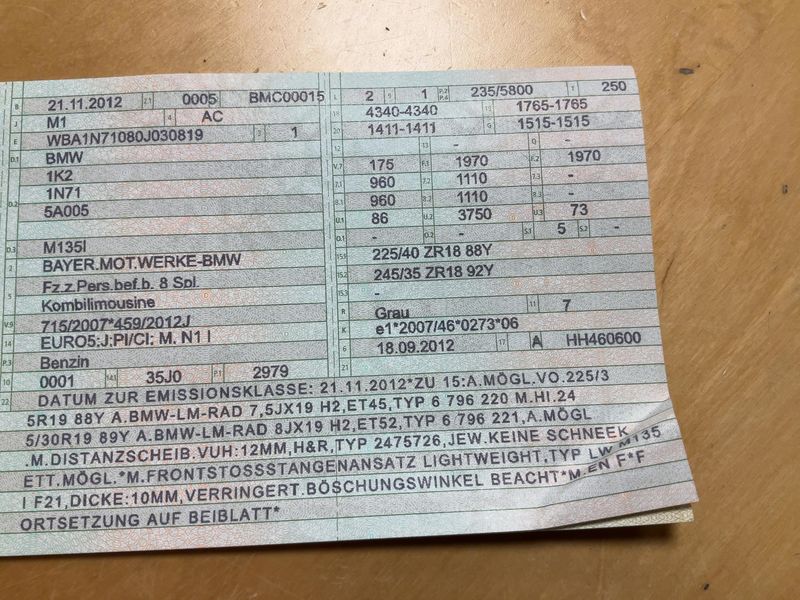 B 21.11.2012 2.1 0005 BMC00015
J M1 4 AC
E WBA1N71080J030819 3 1
D.1 BMW
1K2
D.2 1N71
5A005
D.3 M135I
2 BAYER.MOT.WERKE-BMW
5 Fz.z.Pers.bef.b. 8 Spl.
Kombilimousine
V.9 715/2007*459/2012J
14 EURO5;J;PI/CI; M, N1 I
P.3 Benzin
10 0001 14.1 35J0 P.1 2979
L 2 9 1 P.2 P.4 235/5800 T 250
18 4340-4340 19 1765-1765
20 1411-1411 G 1515-1515
12 - 13 - Q -
V.7 175 F.1 1970 F.2 1970
7.1 960 7.2 1110 7.3 -
8.1 960 8.2 1110 8.3 -
U.1 86 U.2 3750 U.3 73
O.1 - O.2 - S.1 5 S.2 -
15.1 225/40 ZR18 88Y
15.2 245/35 ZR18 92Y
15.3 -
R Grau 11 7
K e1*2007/46*0273*06
6 18.09.2012 17 A 16 HH460600
21
22 DATUM ZUR EMISSIONSKLASSE: 21.11.2012*ZU 15:A.MÖGL.VO.225/3
5R19 88Y A.BMW-LM-RAD 7,5JX19 H2,ET45,TYP 6 796 220 M.HI.24
5/30R19 89Y A.BMW-LM-RAD 8JX19 H2,ET52,TYP 6 796 221,A.MÖGL
.M.DISTANZSCHEIB.VUH:12MM,H&R,TYP 2475726,JEW.KEINE SCHNEEK
ETT.MÖGL.*M.FRONTSTOSSSTANGENANSATZ LIGHTWEIGHT,TYP LW M135
I F21,DICKE:10MM,VERRINGERT.BÖSCHUNGSWINKEL BEACHT*M.EN F*F
ORTSETZUNG AUF BEIBLATT*